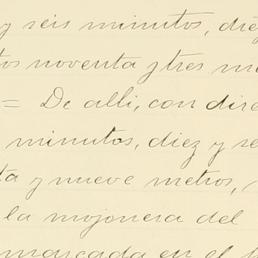 y seis minutos, diez
tos noventa y tres m
= De alli, con dire
minutos, diez y se
ta y nueve metros,
la mojonera del
marcada en el